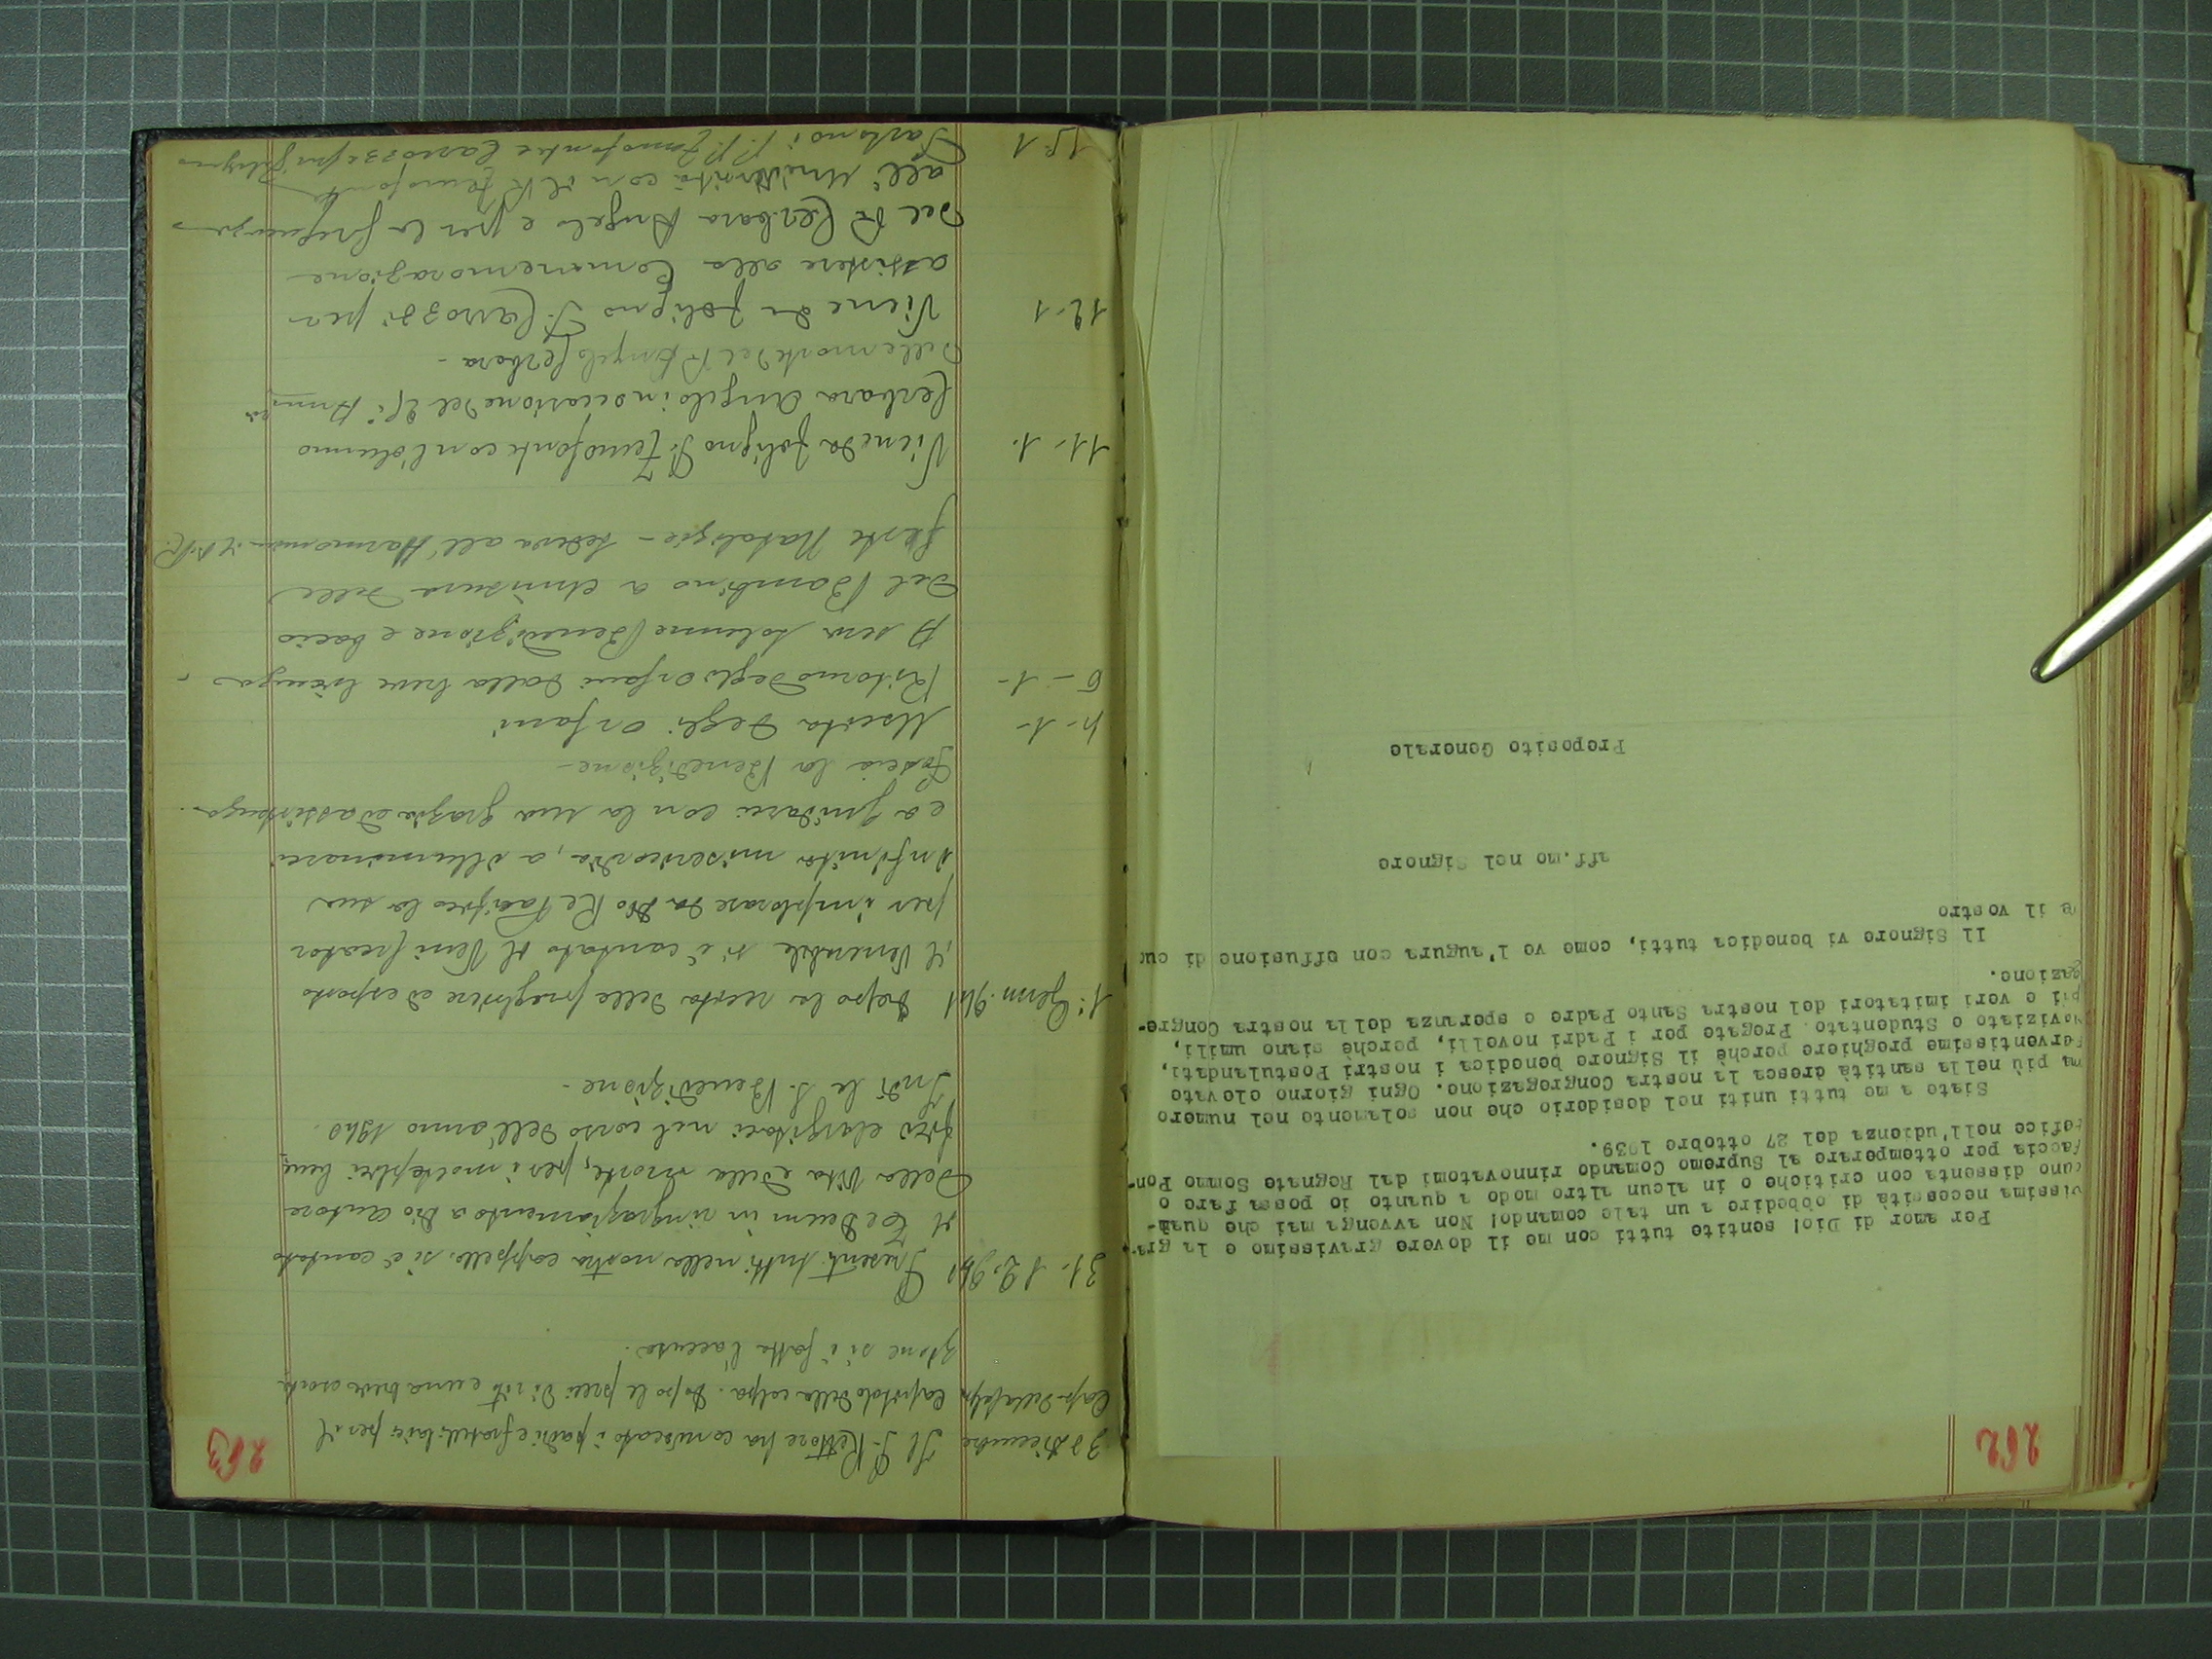 262
Per amor di Dio! sentite tutti con me il dovere gravissimo e la gra-
vissima necessità di obbedire a un tale comando! Non avvenga mai che qual-
cuno dissenta con critiche o in alcun altro modo a quanto io possa fare o
faccia per ottemperare al Supremo Comando rinnovatomi dal Regnate Sommo Pon-
tefice nell'udienza del 27 ottobre 1939.
Siate a me tutti uniti nel desiderio che non solamente nel numero
ma più nella santità cresca la nostra Congregazione. Ogni giorno elevate
ferventissime preghiere perchè il Signore benedica i nostri Postulandati,
Noviziato e Studentato. Pregate per i Padri novelli, perchè siano umili,
pii e veri imitatori del nostra Santo Padre e speranza della nostra Congre-
gazione.
Il Signore vi benedica tutti, come ve l'augura con effusione di cuo
re il vostro
aff.mo nel Signore
Preposito Generale
263
30 Dicembre Il P. Rettore ha convocato i padri e fratelli laici per il
Capitolo della colpa. Dopo le preci di rito e una breve esorta
zione si è fatta l'accusa.
31-12-940 Presenti tutti nella nostra cappella si è cantato
il Te Deum in ringraziamento a Dio autore
della Vita e della morte, per i molteplici bene
fizi elargitoci nel corso dell'anno 1940.
Indi la S. Benedizione -
1° Genn. 941 Dopo la recita delle preghiere ed esposto
il Venerabile si è cantato il Veni Creator
per implorare da Dio Re Pacifico la sua
infinita misericordia, a illuminarci
e a guidarci con la sua grazia ed assistenza.
Poscia la Benedizione -
4-1- Uscita degli orfani
6-1- Ritorno degli orfani dalla breve licenza -
A sera solenne Benedizione e bacio
del Bambino a chiusura delle
feste Natalizie - sedeva all'Harmonium il
11-1. Viene da Foligno P. Zenofonte con l'alunno
Cerbara Angelo in occasione del
della morte del P. Angelo Cerbara -
12-1 Viene da Foligno P. Carrozzi per
assistere alla Commemorazione
del P. Cerbara Angelo e per la
all'Università con il P. Zenofonte
15-1 Partono i P.P. Zenofonte Carrozzi per Foligno